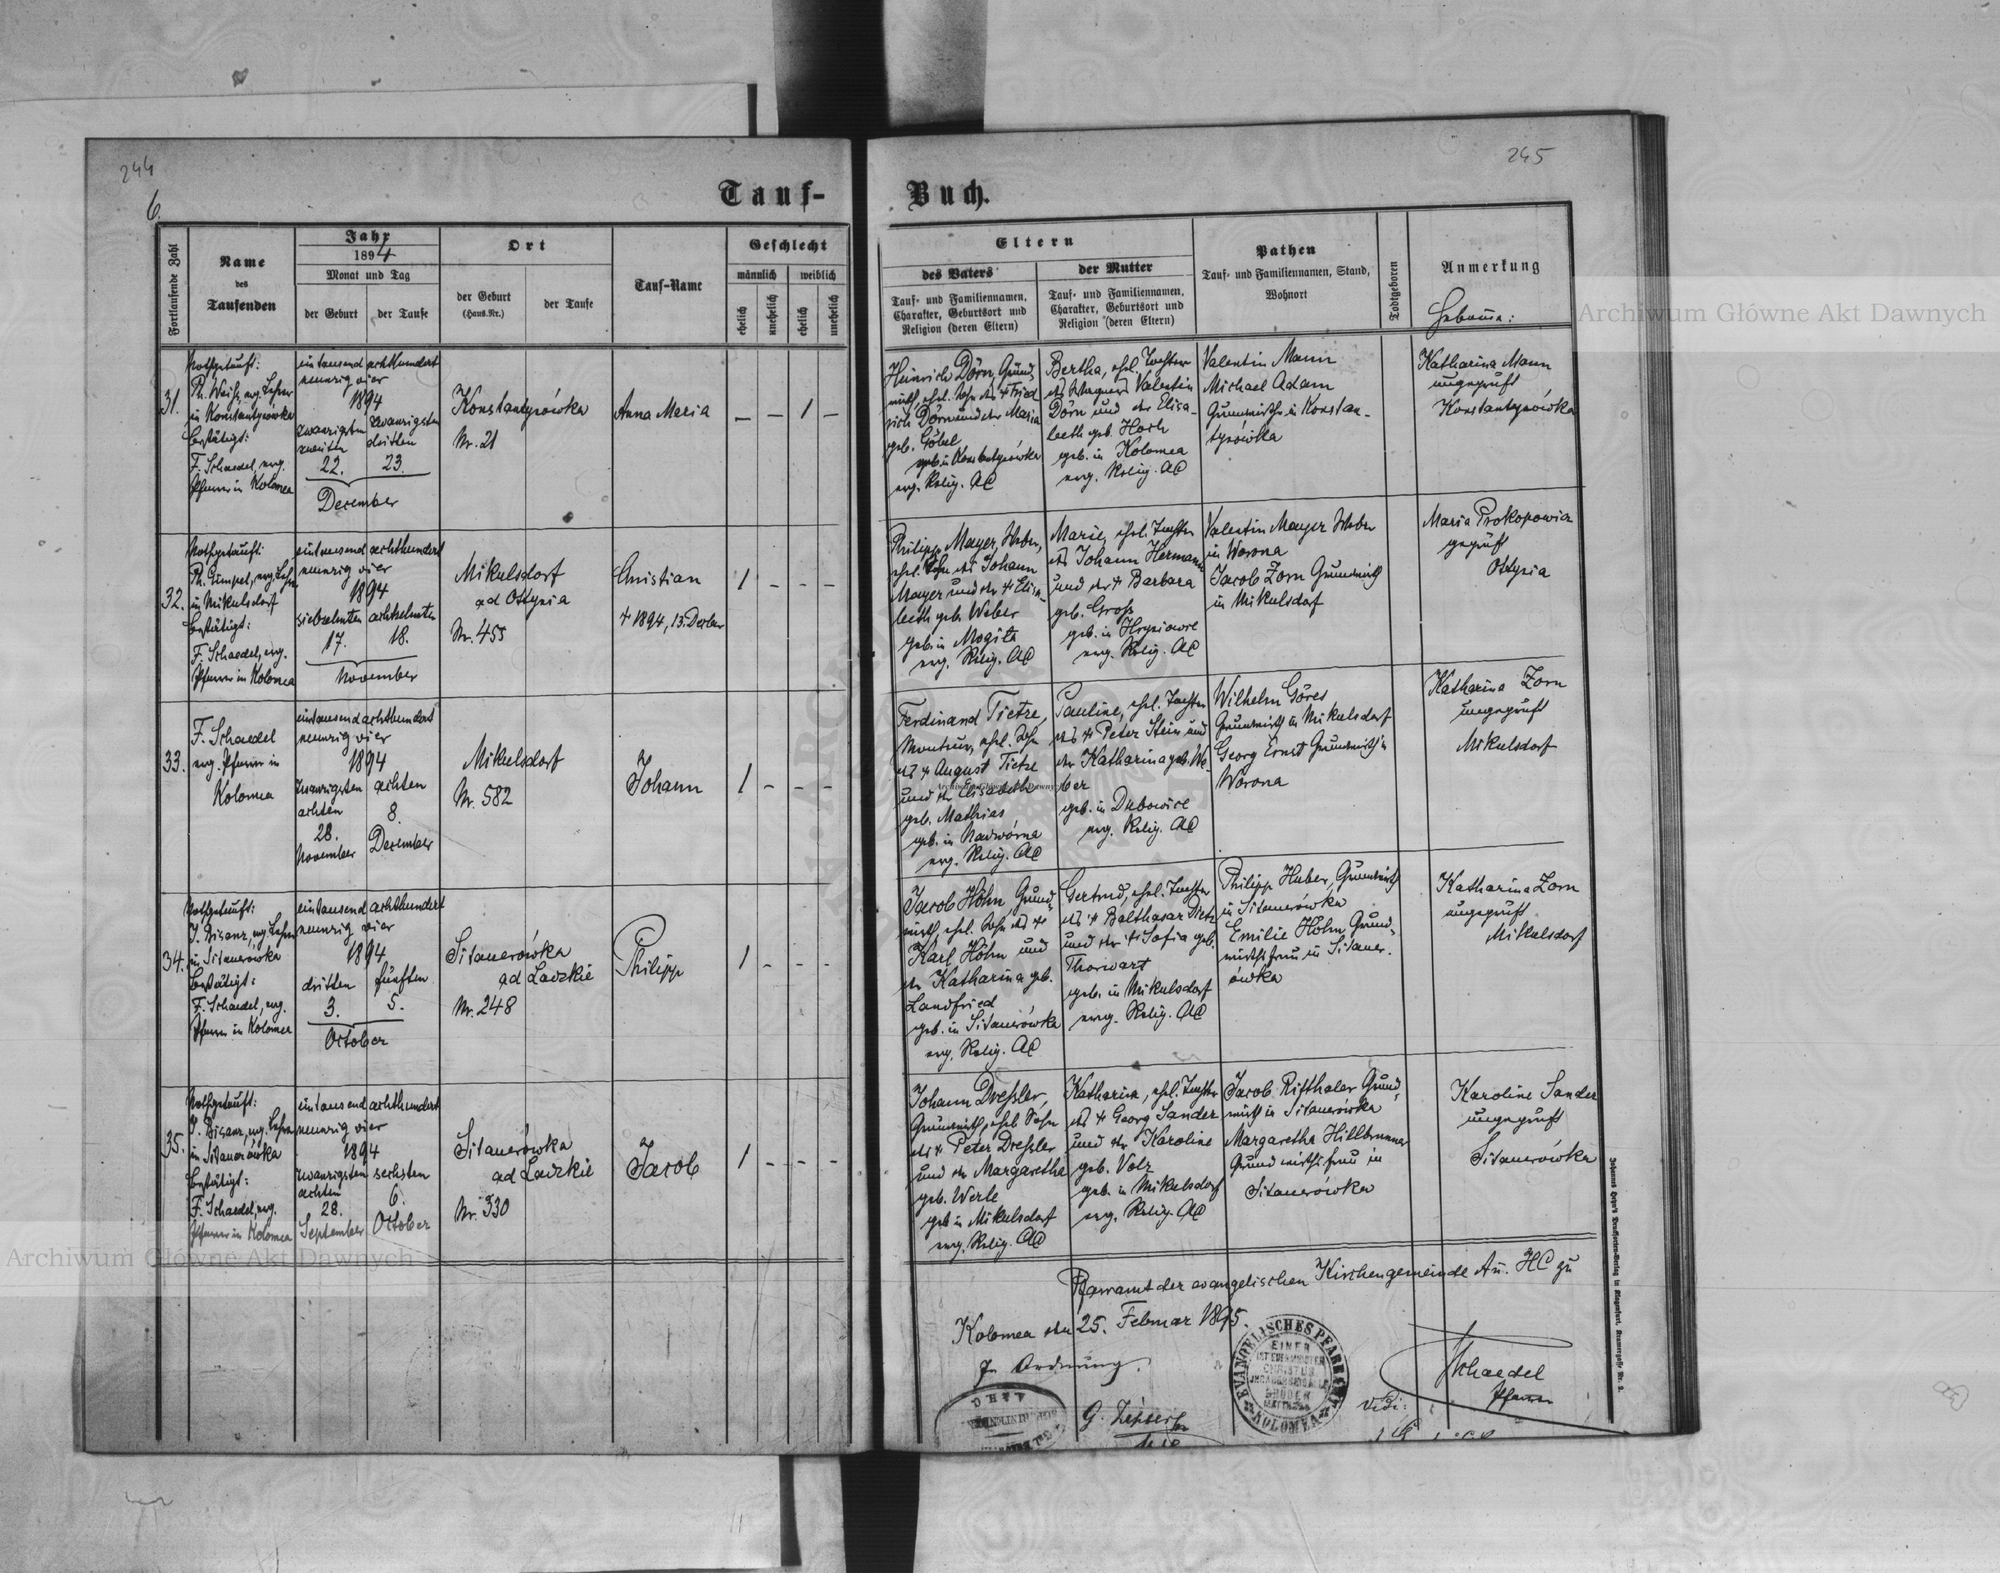 244
245
6.
Tauf-
Buch.
Fortlaufende Zahl
Name
des
Taufenden
Jahr
1894
Monat und Tag
der Geburt
der Taufe
Ort
der Geburt
(Haus-Nr.)
der Taufe
Tauf-Name
Geschlecht
männlich
weiblich
ehelich
unehelich
ehelich
unehelich
Eltern
des Vaters
Tauf- und Familiennamen,
Charakter, Geburtsort und
Religion (deren Eltern)
der Mutter
Tauf- und Familiennamen,
Charakter, Geburtsort und
Religion (deren Eltern)
Pathen
Tauf- und Familiennamen, Stand,
Wohnort
Todtgeboren
Anmerkung
Hebame:
31.
Nothgetauft:
Ph. Weiß, evg. Lehrer
in Konstantynówka
bestätigt:
F. Schaedel, evg.
Pfarrer in Kolomea
eintausend achthundert
neunzig vier
1894
zwanzigsten zwanzigsten
zweiten dritten
22. 23.
December
Konstantynówka
Nr. 21
Anna Maria
— — 1 —
Heinrich Dörn, Grund-
wirth, ehel. Sohn des + Fried
rich Dörn und der Maria
geb. Göbel
geb. in Konstantynówka
evg. Relig. AC
Bertha, ehel. Tochter
des Wagners Valentin
Dörn und der Elisa-
beth geb. Hoch
geb. in Kolomea
evg. Relig. AC
Valentin Mann
Michael Adam
Grundwirthe in Konstan-
tynówka
Katharina Mann
ungeprüft
Konstantynówka
32.
Nothgetauft:
Ph. Gumpel, evg. Lehrer
in Mikulsdorf
bestätigt:
F. Schaedel, evg.
Pfarrer in Kolomea
eintausend achthundert
neunzig vier
1894
siebzehnten achtzehnten
17. 18.
November
Mikulsdorf
ad Ottynia
Nr. 455
Christian
+ 1894, 13. Dezber
1 - - -
Philipp Mayer, Weber,
ehel. Sohn des Johann
Mayer und der + Elisa-
beth geb. Weber
geb. in Mogila
evg. Relig. AC
Marie, ehel. Tochter
des Johann Hermann
und der + Barbara
geb. Groß
geb. in Hryniowce
evg. Relig. AC
Valentin Mayer Weber
in Worona
Jacob Zorn Grundwirth
in Mikulsdorf
Maria Prokopowicz
geprüft
Ottynia
33.
F. Schaedel
evg. Pfarrer in
Kolomea
eintausend achthundert
neunzig vier
1894
zwanzigsten achten
achten 8.
28.
November December
Mikulsdorf
Nr. 582
Johann
1 - - -
Ferdinand Tietze,
Monteur, ehel. Sohn
des + August Tietze
und der Elisabeth
geb. Mathias
geb. in Nadwórna
evg. Relig. AC
Pauline, ehel. Tochter
des + Peter Stein und
der Katharina geb. We-
ber
geb. in Dubowice
evg. Relig. AC
Wilhelm Göres
Grundwirth in Mikulsdorf
Georg Ernst Grundwirth in
Worona
Katharina Zorn
ungeprüft
Mikulsdorf
34.
Nothgetauft:
J. Bisanz, evg. Lehrer
in Sitauerówka
bestätigt:
F. Schaedel, evg.
Pfarrer in Kolomea
eintausend achthundert
neunzig vier
1894
dritten fünften
3. 5.
October
Sitauerówka
ad Ladzkie
Nr. 248
Philipp
1 - - -
Jacob Höhn Grund-
wirth, ehel. Sohn des +
Karl Höhn und
der Katharina geb.
Landfried
geb. in Sitauerówka
evg. Relig. AC
Gertrud, ehel. Tochter
des + Balthasar Dietz
und der + Sofia geb.
Thorwart
geb. in Mikulsdorf
evg. Relig. AC
Philipp Huber, Grundwirth
in Sitauerówka
Emilie Höhn Grund-
wirthsfrau in Sitauer-
ówka
Katharina Zorn
ungeprüft
Mikulsdorf
35.
Nothgetauft:
J. Bisanz, evg. Lehrer
in Sitauerówka
bestätigt:
F. Schaedel, evg.
Pfarrer in Kolomea
eintausend achthundert
neunzig vier
1894
zwanzigsten sechsten
achten 6.
28.
September October
Sitauerówka
ad Ladzkie
Nr. 330
Jacob
1 - - -
Johann Dreßler,
Grundwirth, ehel. Sohn
des + Peter Dreßler
und der Margaretha
geb. Werle
geb. in Mikulsdorf
evg. Relig. AC
Katharina, ehel. Tochter
des + Georg Sander
und der Karoline
geb. Volz
geb. in Mikulsdorf
evg. Relig. AC
Jacob Ritthaler Grund-
wirth in Sitauerówka
Margaretha Hillbrunner
Grundwirthsfrau in
Sitauerówka
Karoline Sander
ungeprüft
Sitauerówka
Pfarramt der evangelischen Kirchengemeinde A u. HC zu
Kolomea den 25. Februar 1895.
In Ordnung.
Schaedel
Pfarrer
Vidi:
EVANGELISCHES PFARRAMT
EINER
IST EUER MEISTER
CHRISTUS
BRÜDER
KOLOMEA
A & H. C.
Johannes Heyn's Drucksorten-Verlag in Klagenfurt, Kramergasse Nr. 2.
Archiwum Główne Akt Dawnych
Archiwum Główne Akt Dawnych
Archiwum Główne Akt Dawnych